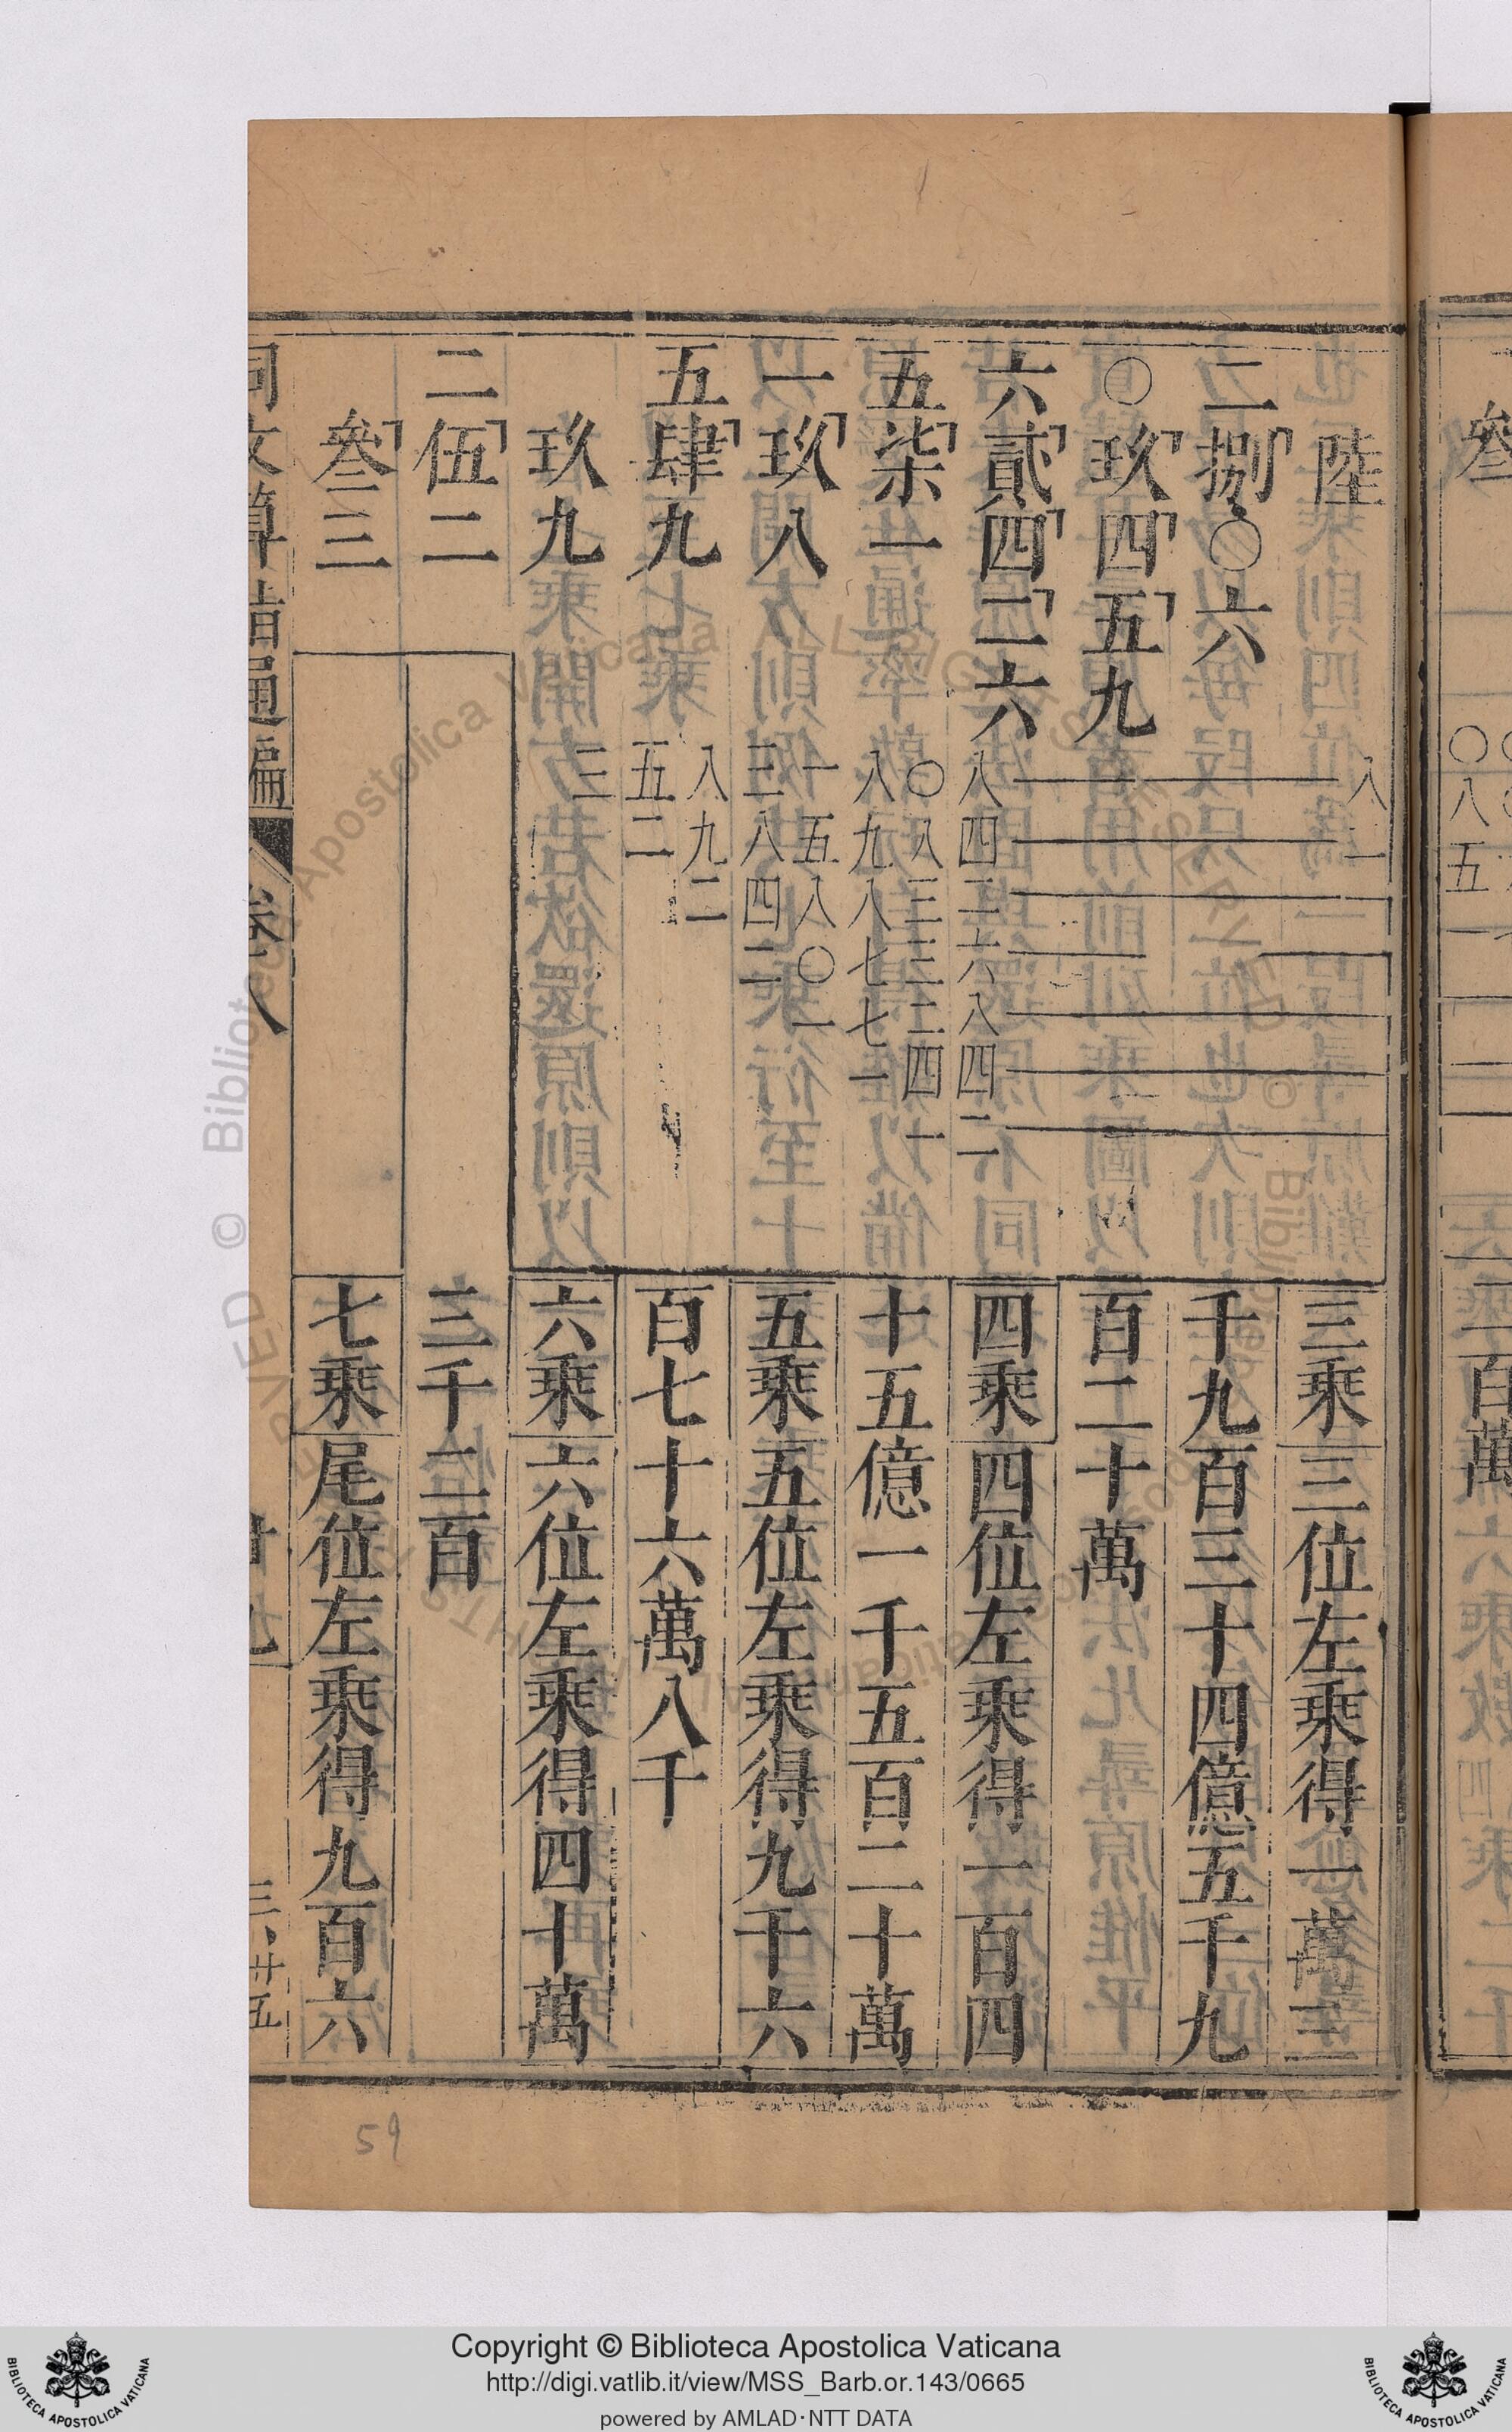 陸
二捌〇六
〇玖四五九
六貳四二六
五柒一
一玖八
五肆九
玖九
二伍二
叁三
八二
八四三六八四二
〇八三三二四一
八九八七七一
一五八〇一
三八四二
八九二
五二一
三
三乘三位左乘得一萬三
千九百三十四億五千九
百二十萬
四乘四位左乘得一百四
十五億一千五百二十萬
五乘五位左乘得九千六
百七十六萬八千
六乘六位左乘得四十萬
三千二百
七乘尾位左乘得九百六
同文算指通編
卷八
廿九
三、廿五
叁
〇八五
二百萬
59
Copyright © Biblioteca Apostolica Vaticana
http://digi.vatlib.it/view/MSS_Barb.or.143/0665
powered by AMLAD·NTT DATA
BIBLIOTECA APOSTOLICA VATICANA
BIBLIOTECA APOSTOLICA VATICANA